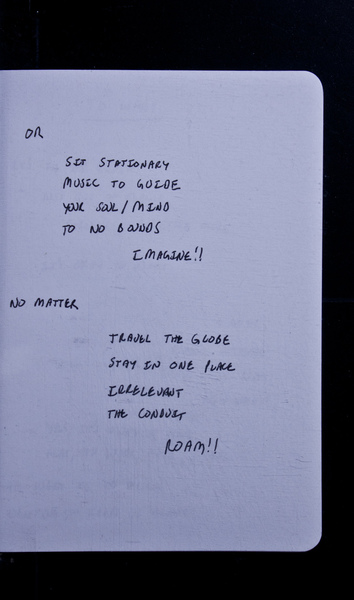 OR
SIT STATIONARY
MUSIC TO GUIDE
YOUR SOUL/MIND
TO NO BOUNDS
IMAGINE!!
NO MATTER
TRAVEL THE GLOBE
STAY IN ONE PLACE
IRRELEVANT
THE CONDUIT
ROAM!!